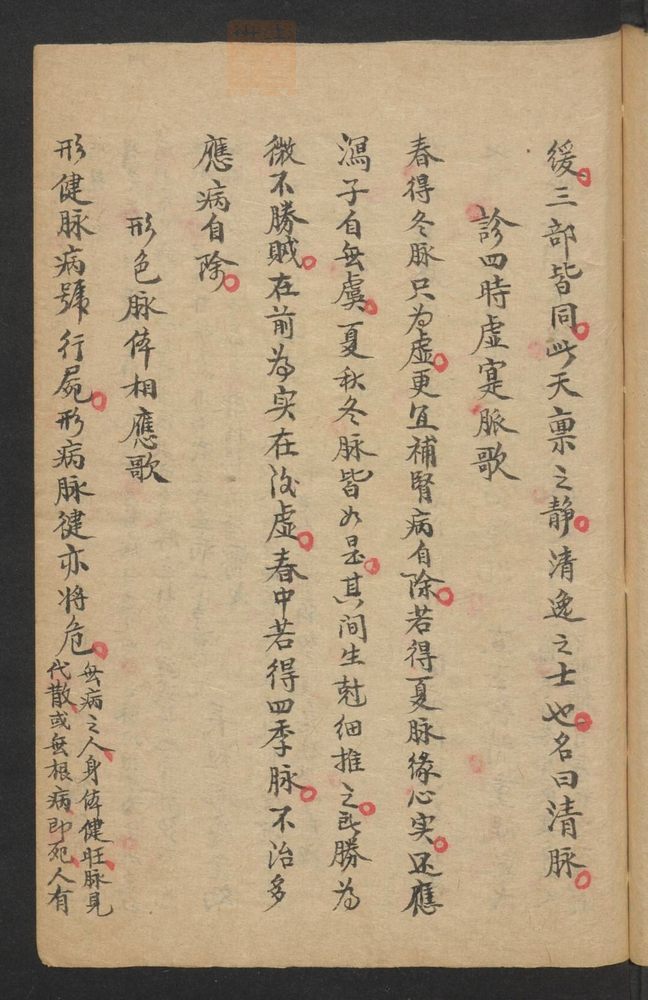 緩三部皆同此天禀之靜清逸之士也名曰清脉
診四時虛寔脈歌
春得冬脉只为虛更宜補腎病自除若得夏脉缘心实还應
瀉子自無虞夏秋冬脉皆如是其间生尅细推之我勝为
微不勝賊在前为实在後虛春中若得四季脉不治多
應病自除
形色脉体相應歌
形健脉病號行屍形病脉健亦将危
無病之人身体健旺脉見
代散或無根病即死人有